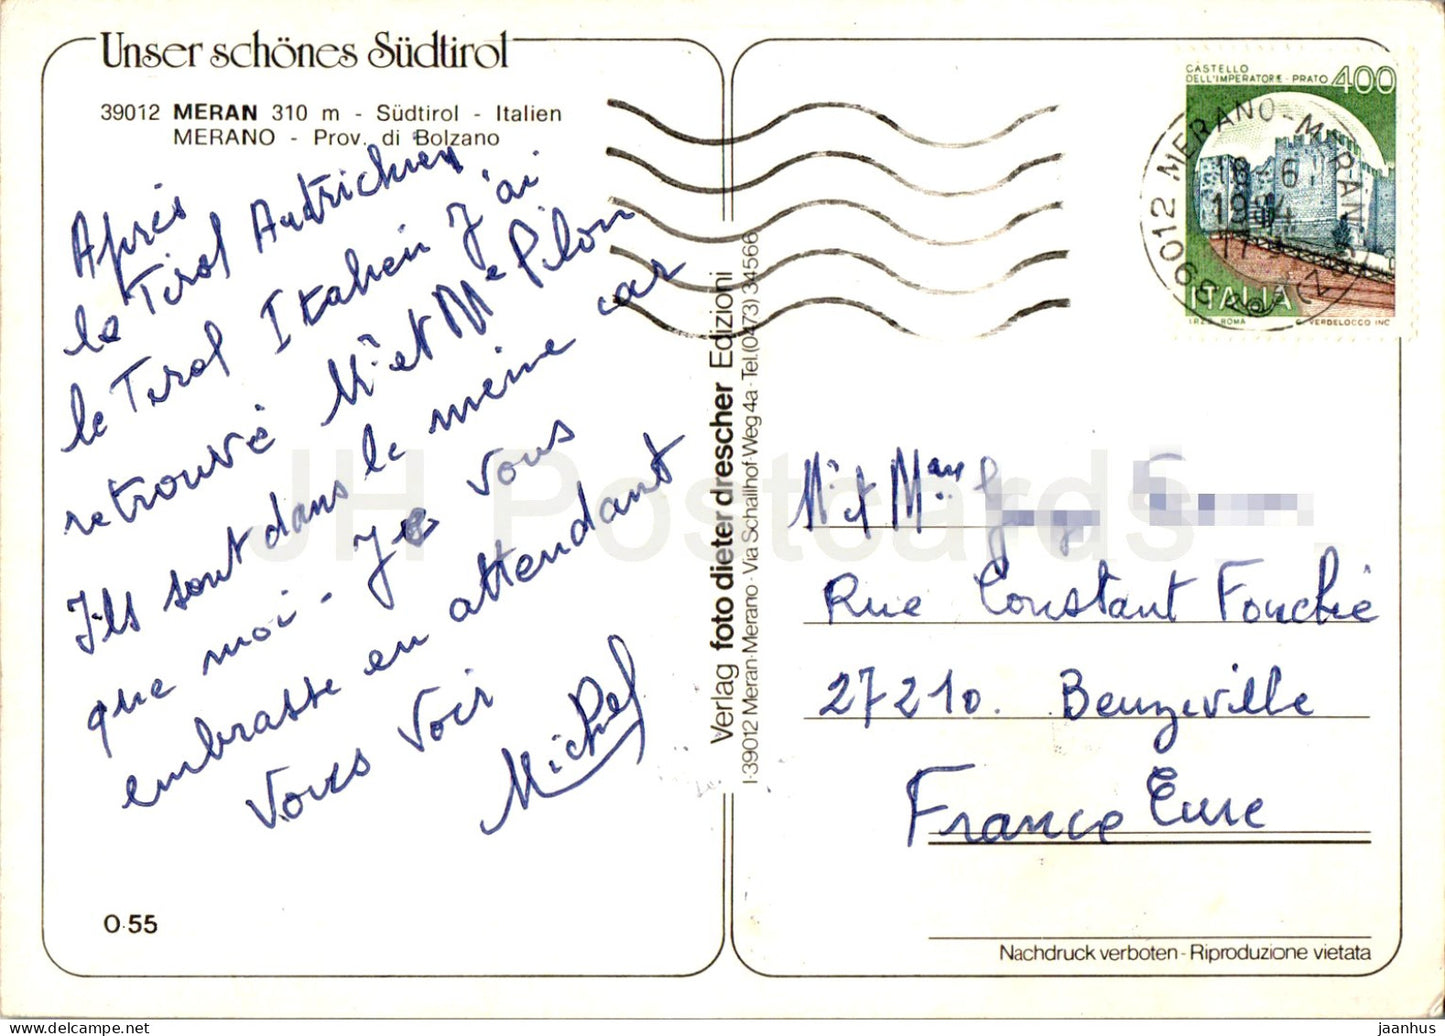 Unser schönes Südtirol
39012 MERAN 310 m - Südtirol - Italien
MERANO - Prov. di Bolzano
Après
le Tirol Autrichien
le Tirol Italien J'ai
retrouvé Mr et Me Pilon
Ils sont dans le même car
que moi - Je vous
embrasse en attendant
Vous Voir
Michel
O.55
Verlag foto dieter drescher Edizioni
I-39012 Meran-Merano - Via Schallhof-Weg 4a - Tel.(0473) 34566
CASTELLO
DELL'IMPERATORE - PRATO 400
ITALIA
I.P.Z.S. ROMA G. VERDELOCCO INC.
39012 MERANO - MERANO
18-6
1984
17
Mr et Mme
Rue Constant Fouché
27210. Beuzeville
France Eure
Nachdruck verboten - Riproduzione vietata
JH Postcards
delcampe.net
jaanhus